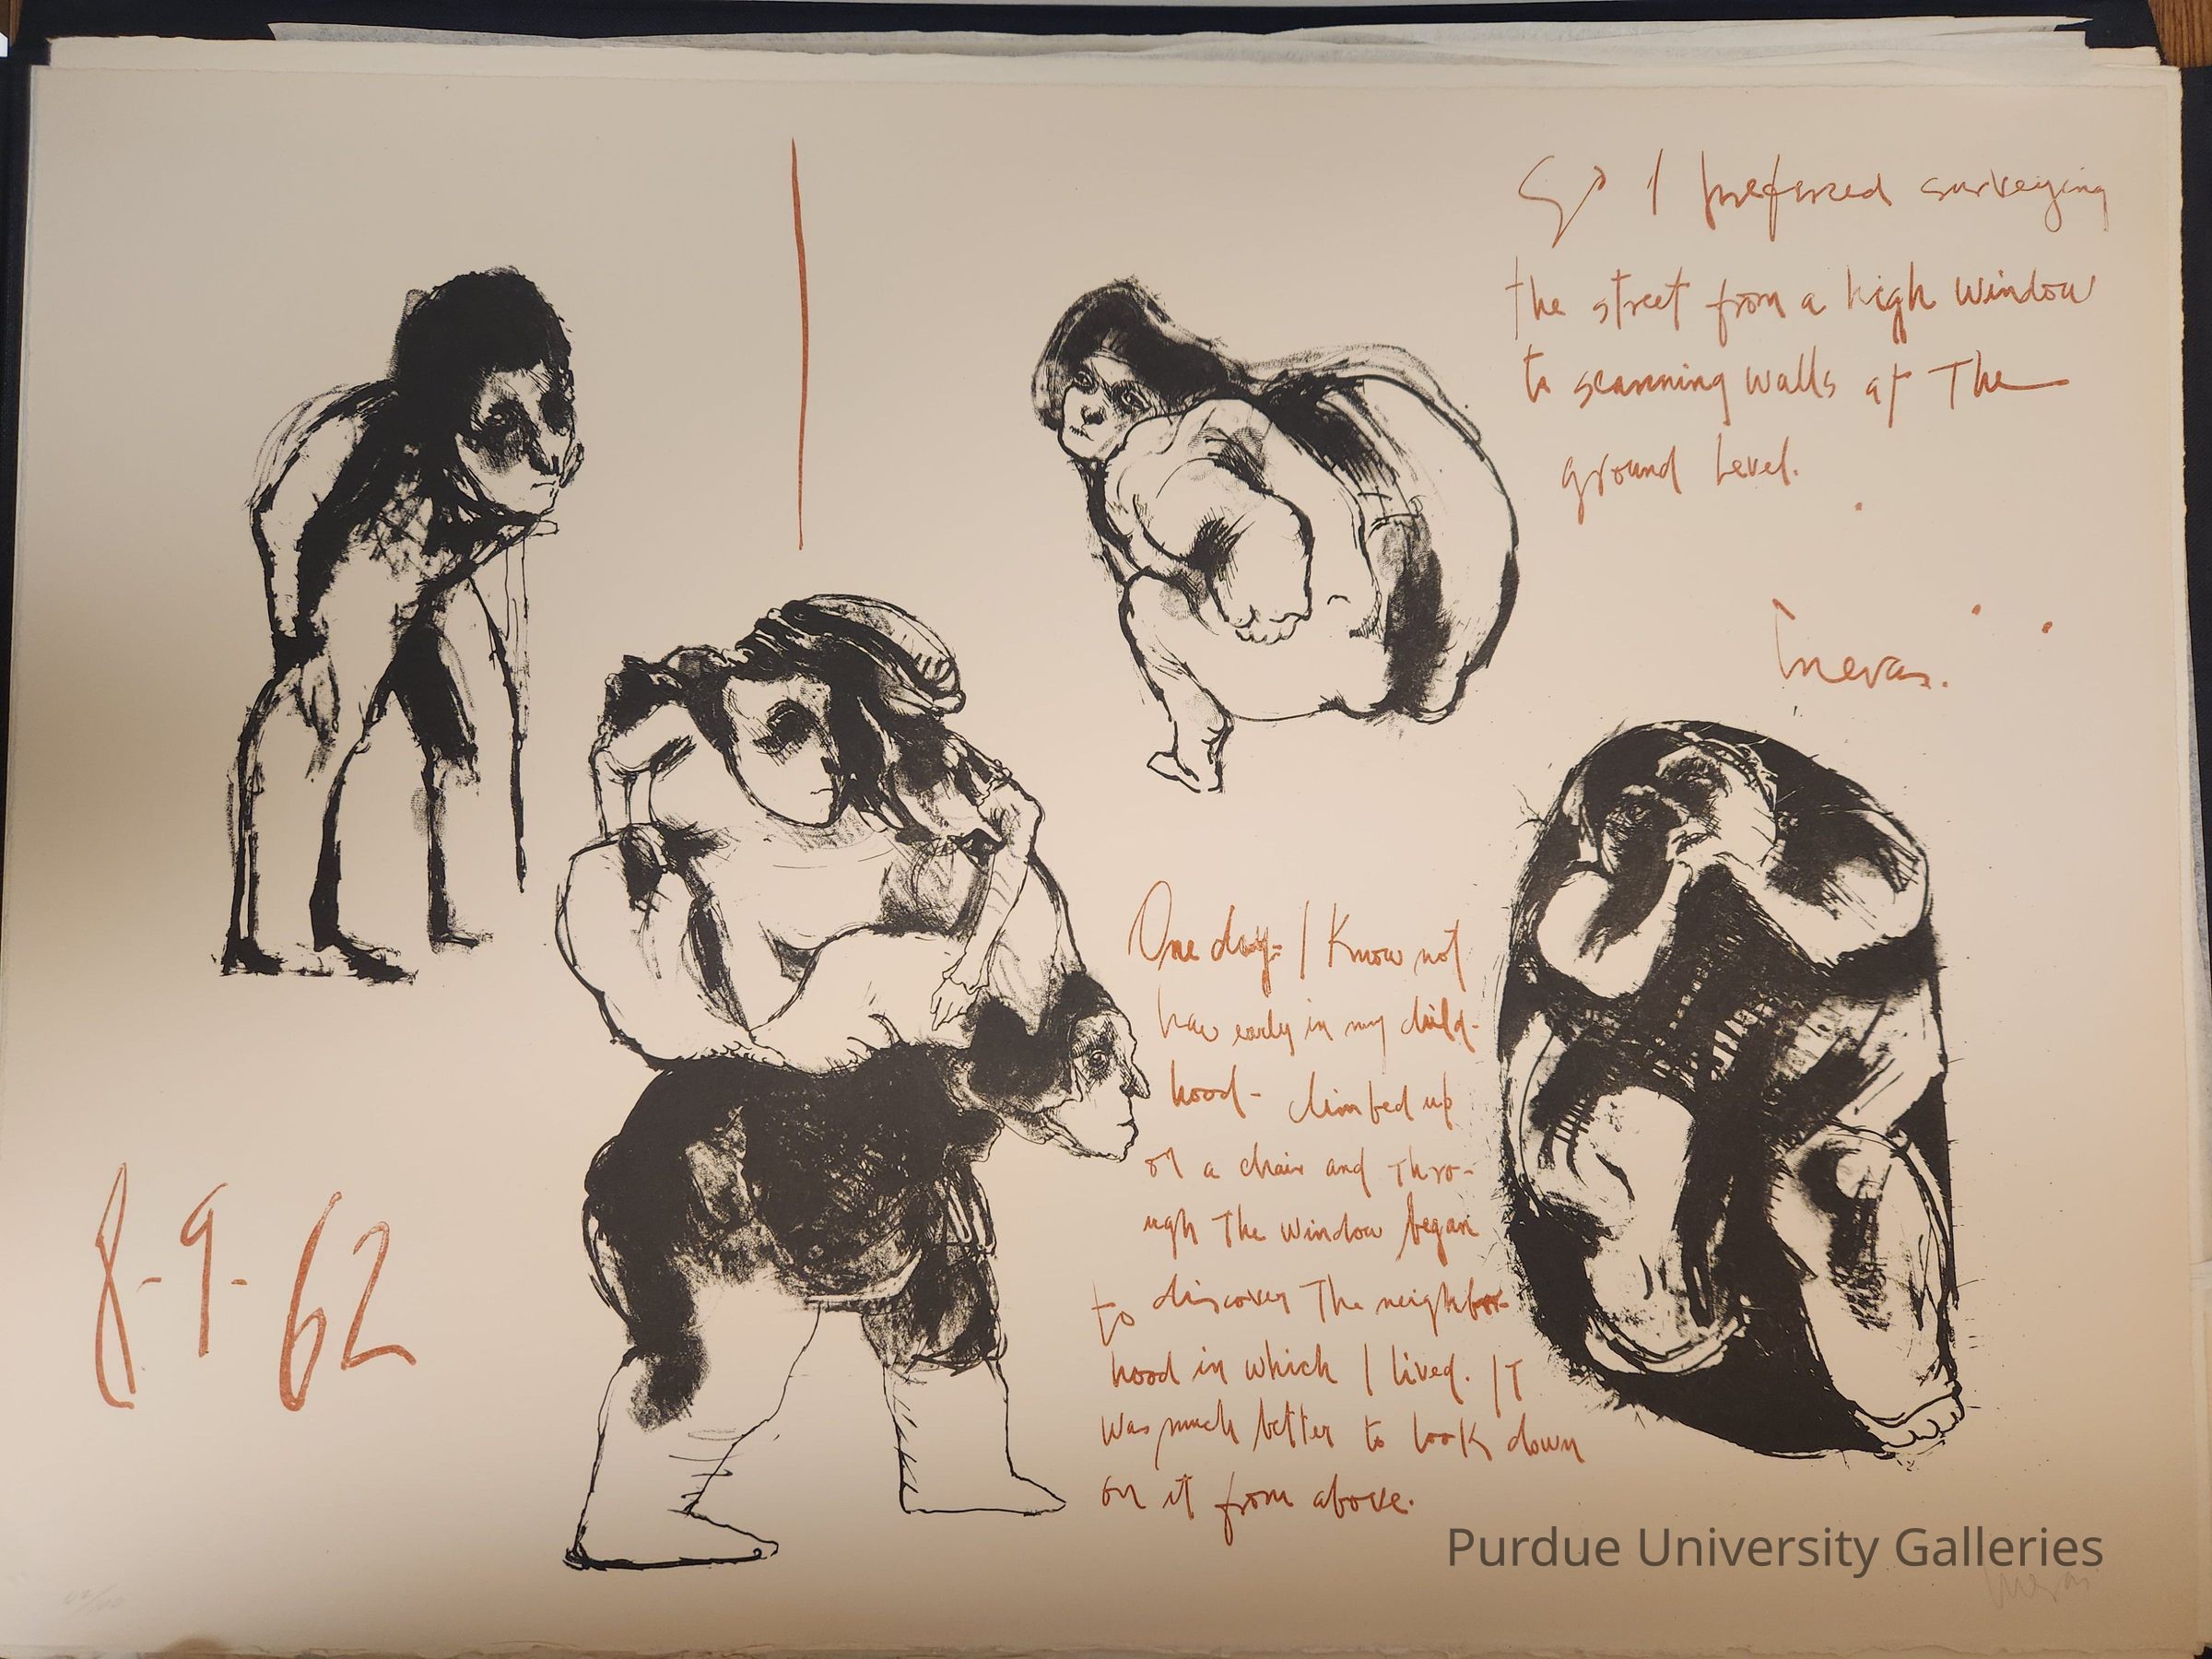 So I preferred surveying
the street from a high window
to scanning walls at The
ground level.
Cuevas.
One day- I Know not
how early in my child-
hood- climbed up
on a chair and thro-
ugh The window began
to discover The neighbor-
hood in which I lived. IT
was much better to look down
on it from above.
8-9-62
Purdue University Galleries
Cuevas